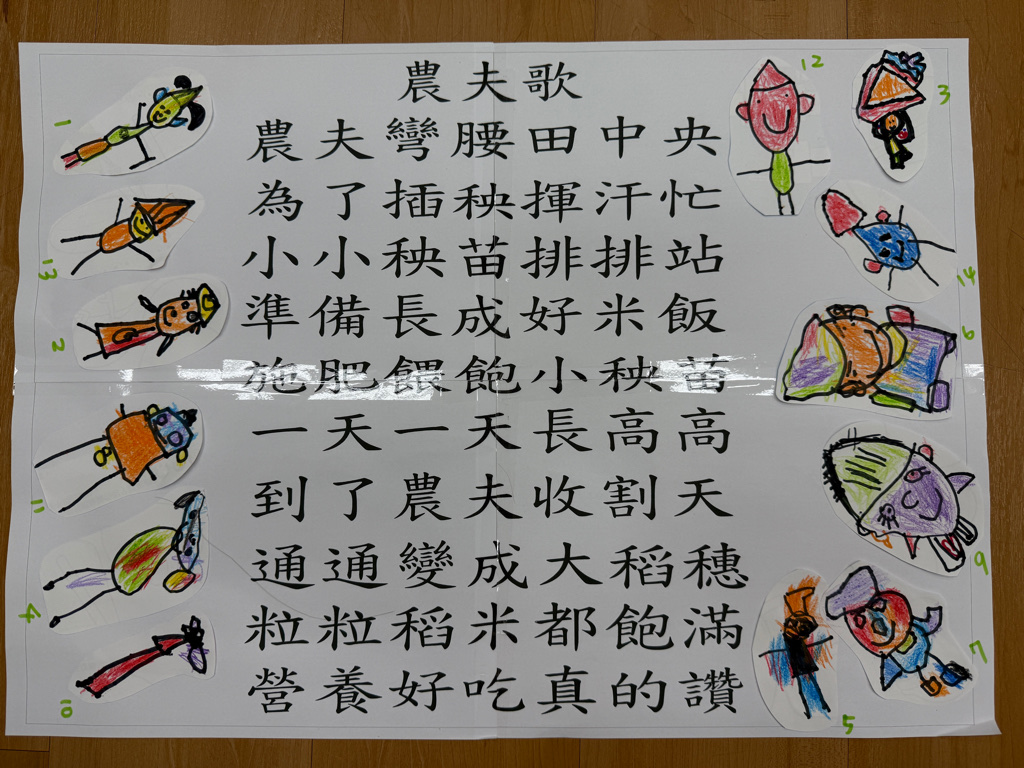 農夫歌
農夫彎腰田中央
為了插秧揮汗忙
小小秧苗排排站
準備長成好米飯
施肥餵飽小秧苗
一天一天長高高
到了農夫收割天
通通變成大稻穗
粒粒稻米都飽滿
營養好吃真的讚
1
13
2
11
4
10
12
3
14
6
9
7
5